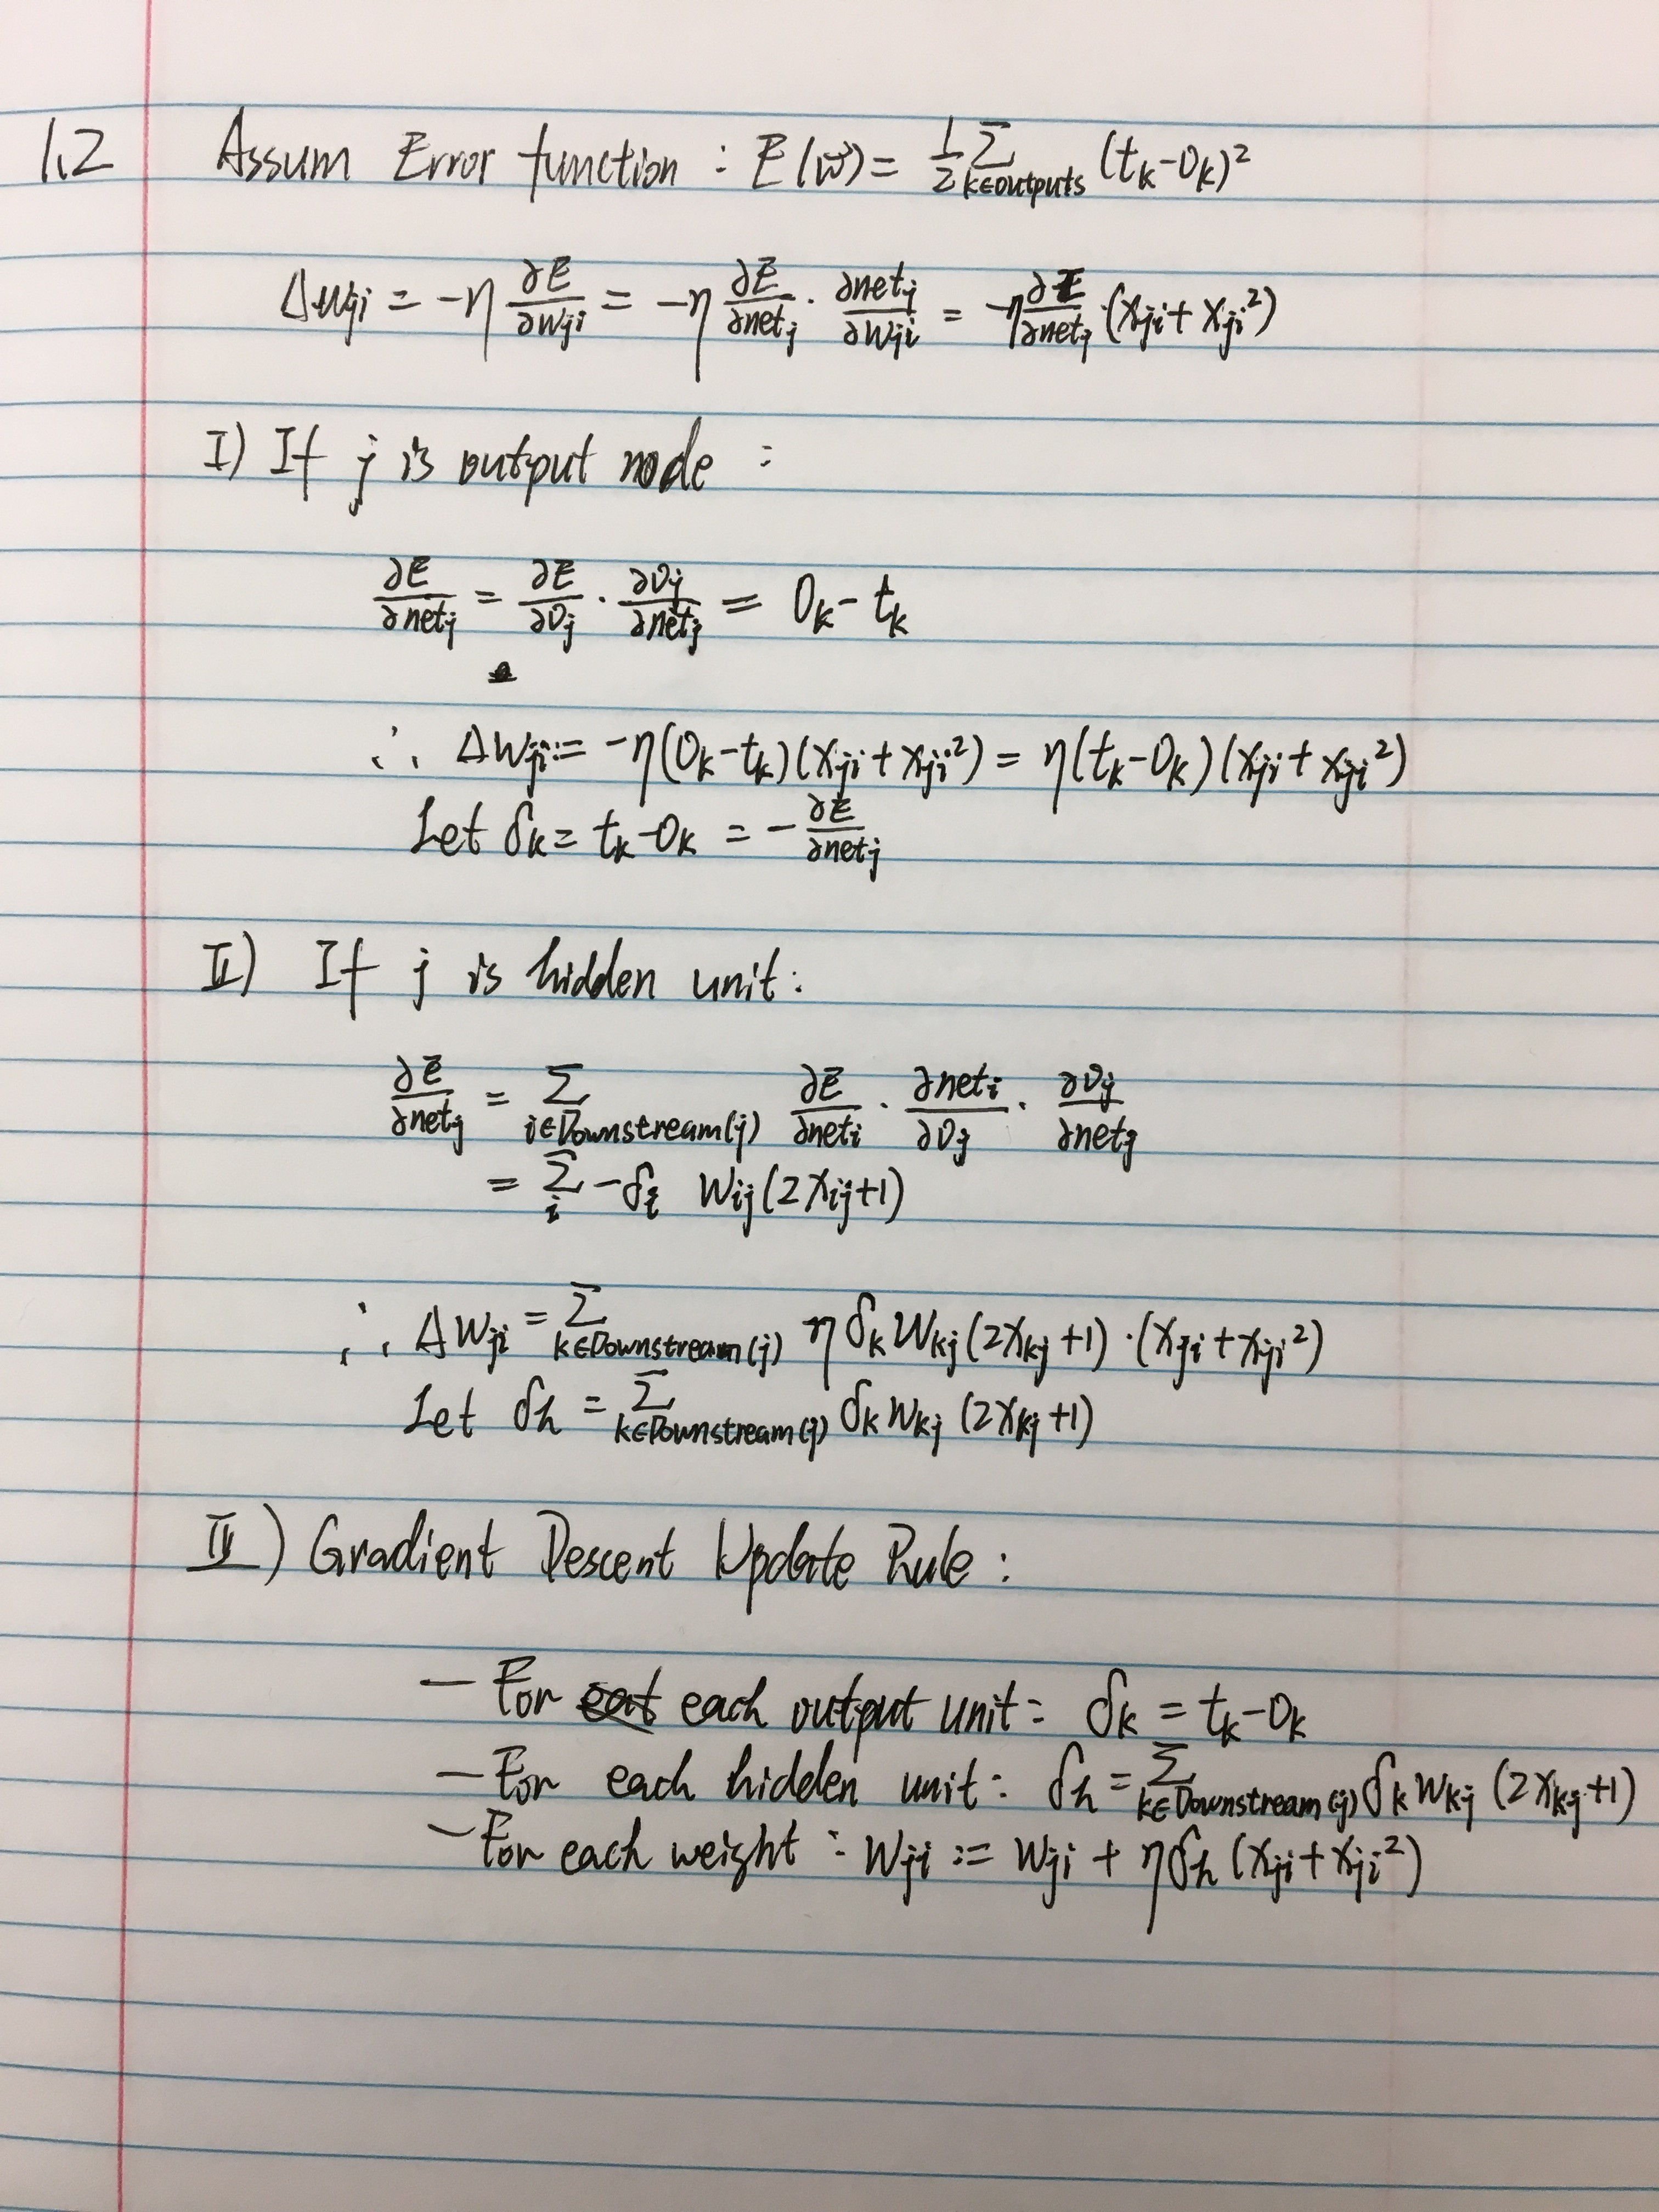 1.2 Assum Error function : E(w⃗) = 1/2 Σ_{k∈outputs} (t_k - O_k)²
Δw_ji = -η ∂E/∂w_ji = -η ∂E/∂net_j · ∂net_j/∂w_ji = -η ∂E/∂net_j · (x_ji + x_ji²)
I) If j is output node :
∂E/∂net_j = ∂E/∂O_j · ∂O_j/∂net_j = O_k - t_k
∴ Δw_ji = -η(O_k - t_k)(x_ji + x_ji²) = η(t_k - O_k)(x_ji + x_ji²)
Let δ_k = t_k - O_k = - ∂E/∂net_j
II) If j is hidden unit :
∂E/∂net_j = Σ_{i∈Downstream(j)} ∂E/∂net_i · ∂net_i/∂O_j · ∂O_j/∂net_j
= Σ_i -δ_i w_ij (2x_ij + 1)
∴ Δw_ji = Σ_{k∈Downstream(j)} η δ_k w_kj (2x_kj + 1) · (x_ji + x_ji²)
Let δ_h = Σ_{k∈Downstream(j)} δ_k w_kj (2x_kj + 1)
IV) Gradient Descent Update Rule :
— For each output unit : δ_k = t_k - O_k
— For each hidden unit : δ_h = Σ_{k∈Downstream(j)} δ_k w_kj (2x_kj + 1)
— For each weight : w_ji := w_ji + η δ_h (x_ji + x_ji²)